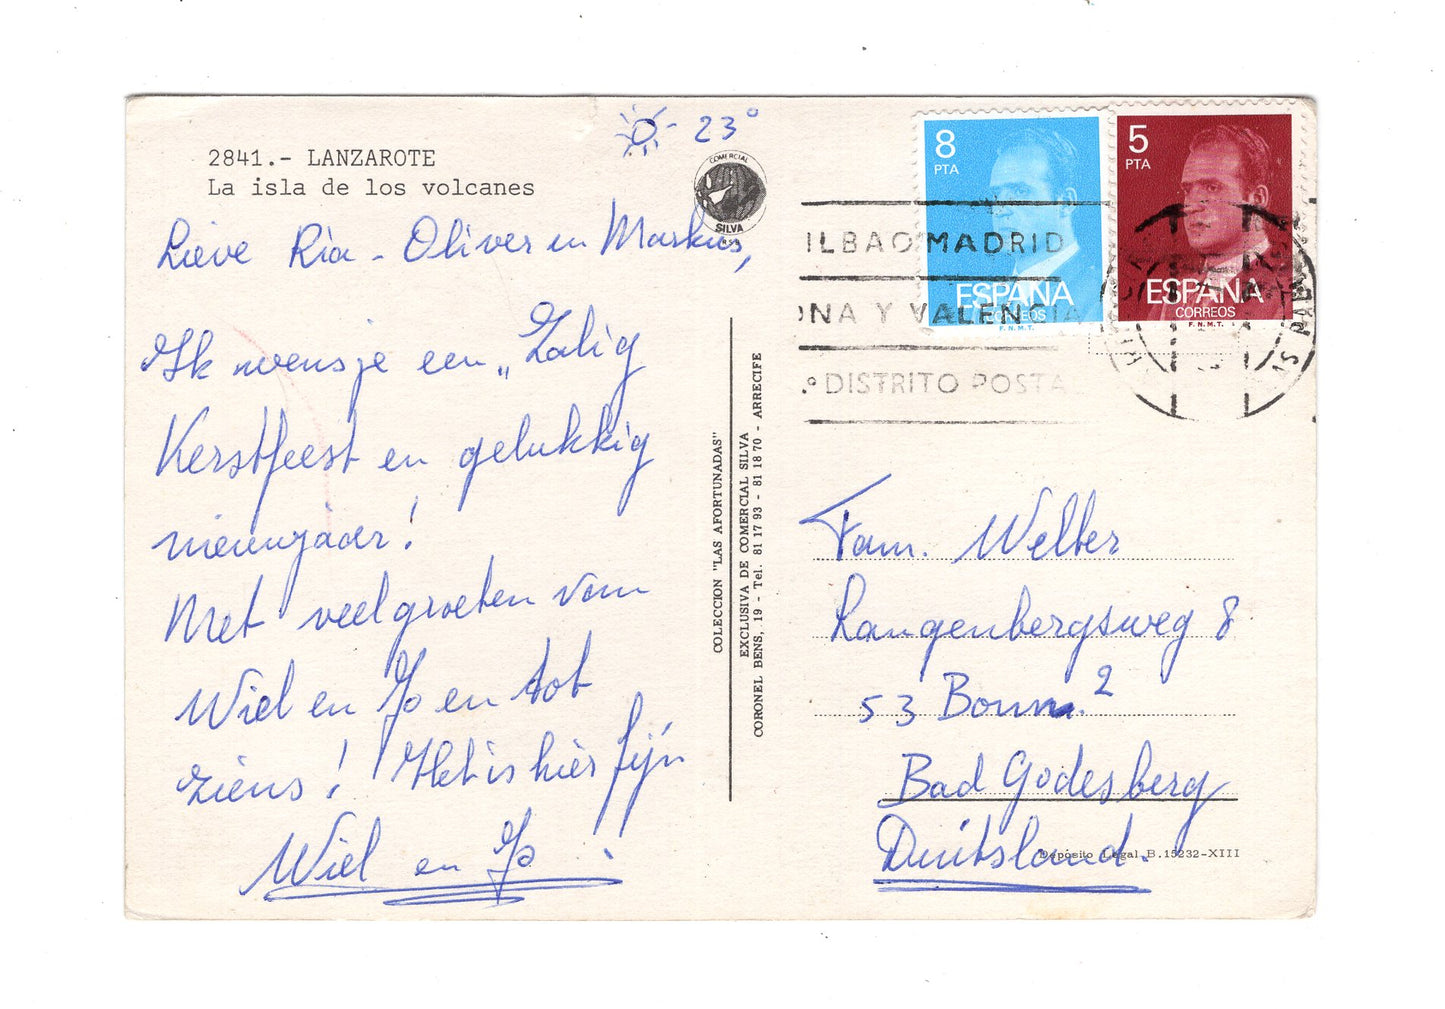 23°
2841.- LANZAROTE
La isla de los volcanes
COMERCIAL
SILVA
Lieve Ria - Oliver en Markus,
Ik wens je een „Zalig
Kerstfeest en gelukkig
nieuwjaar!
Met veel groeten van
Wiel en Jo en tot
ziens! Het is hier fijn
Wiel en Jo
COLECCION "LAS AFORTUNADAS"
EXCLUSIVA DE COMERCIAL SILVA
CORONEL BENS, 19 - Tel. 81 17 93 - 81 18 70 - ARRECIFE
8
PTA
ESPAÑA
CORREOS
F.N.M.T.
5
PTA
ESPAÑA
CORREOS
F.N.M.T.
ILBAO MADRID
ONA Y VALENCIA
.º DISTRITO POSTA
Fam. Welter
Langenbergsweg 8
53 Bonn 2
Bad Godesberg
Duitsland.
Depósito Legal B. 15232-XIII